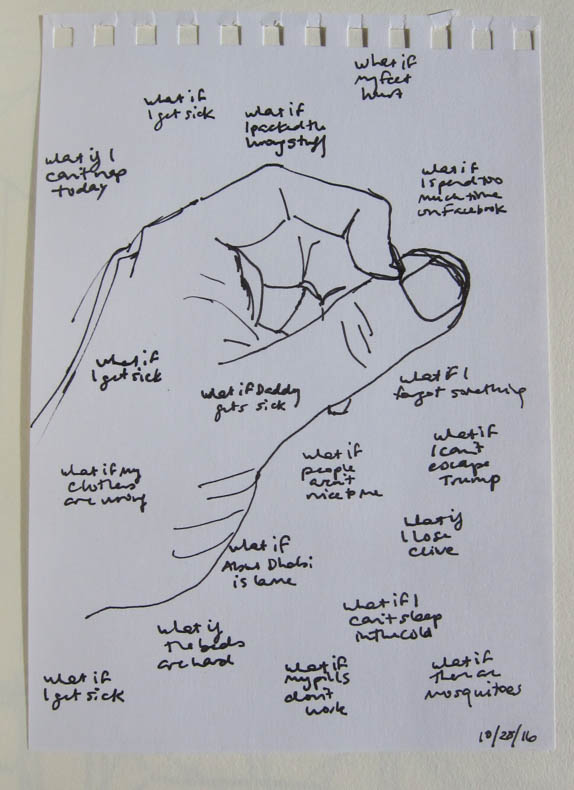 what if
my feet
hurt
what if
I get sick
what if
I packed the
wrong stuff
what if I
can't nap
today
what if
I spend too
much time
on Facebook
what if
I get sick
what if Daddy
gets sick
what if I
forgot something
what if my
clothes
are wrong
what if
people
aren't
nice to me
what if
I can't
escape
Trump
what if
I lose
Clive
what if
Abu Dhabi
is lame
what if I
can't sleep
in the cold
what if
the beds
are hard
what if
I get sick
what if
my pills
don't
work
what if
there are
mosquitoes
10/25/16